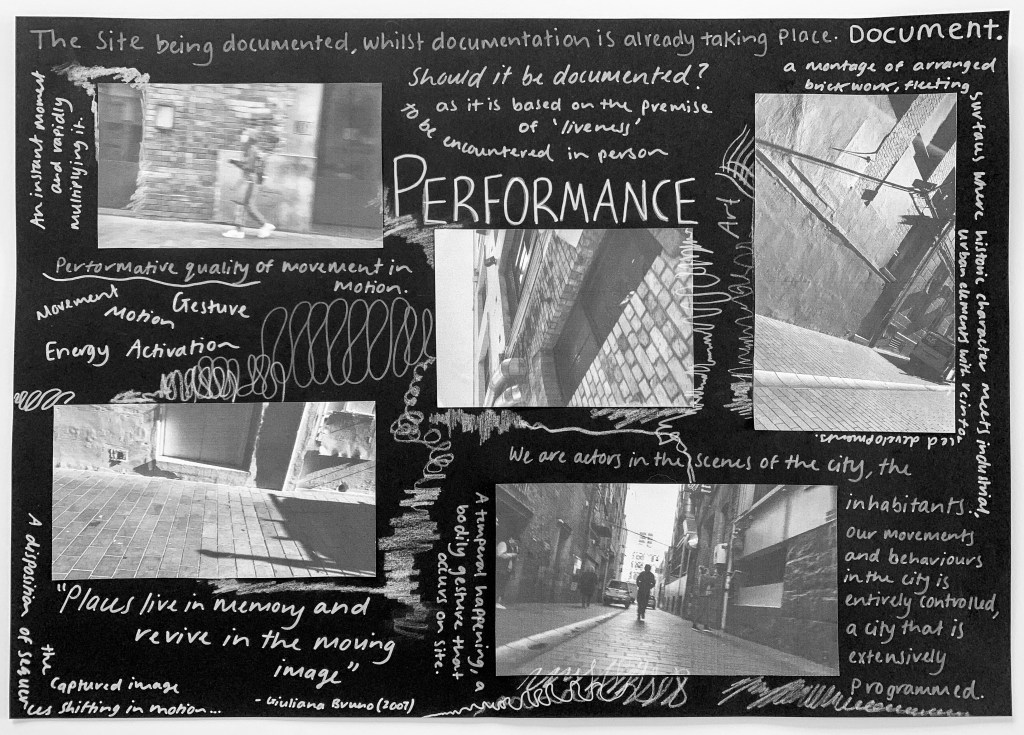 The Site being documented, whilst documentation is already taking place. DOCUMENT.
Should it be documented?
as it is based on the premise
of 'liveness'
to be encountered in person
PERFORMANCE
An instant moment
and rapidly
multiplying it.
a montage of arranged
brickwork, fleeting
surfaces where historic character meets industrial,
urban elements with reinfo
ced developments.
Art
Performative quality of movement in
motion.
Movement
Motion
Gesture
Energy Activation
We are actors in the scenes of the city, the
inhabitants.
our movements
and behaviours
in the city is
entirely controlled,
a city that is
extensively
Programmed.
A temperal happening, a
bodily gesture that
occurs on site.
"Places live in memory and
revive in the moving
image"
- Giuliana Bruno (2007)
A disposition of sequen
ces shifting in motion...
the
captured image